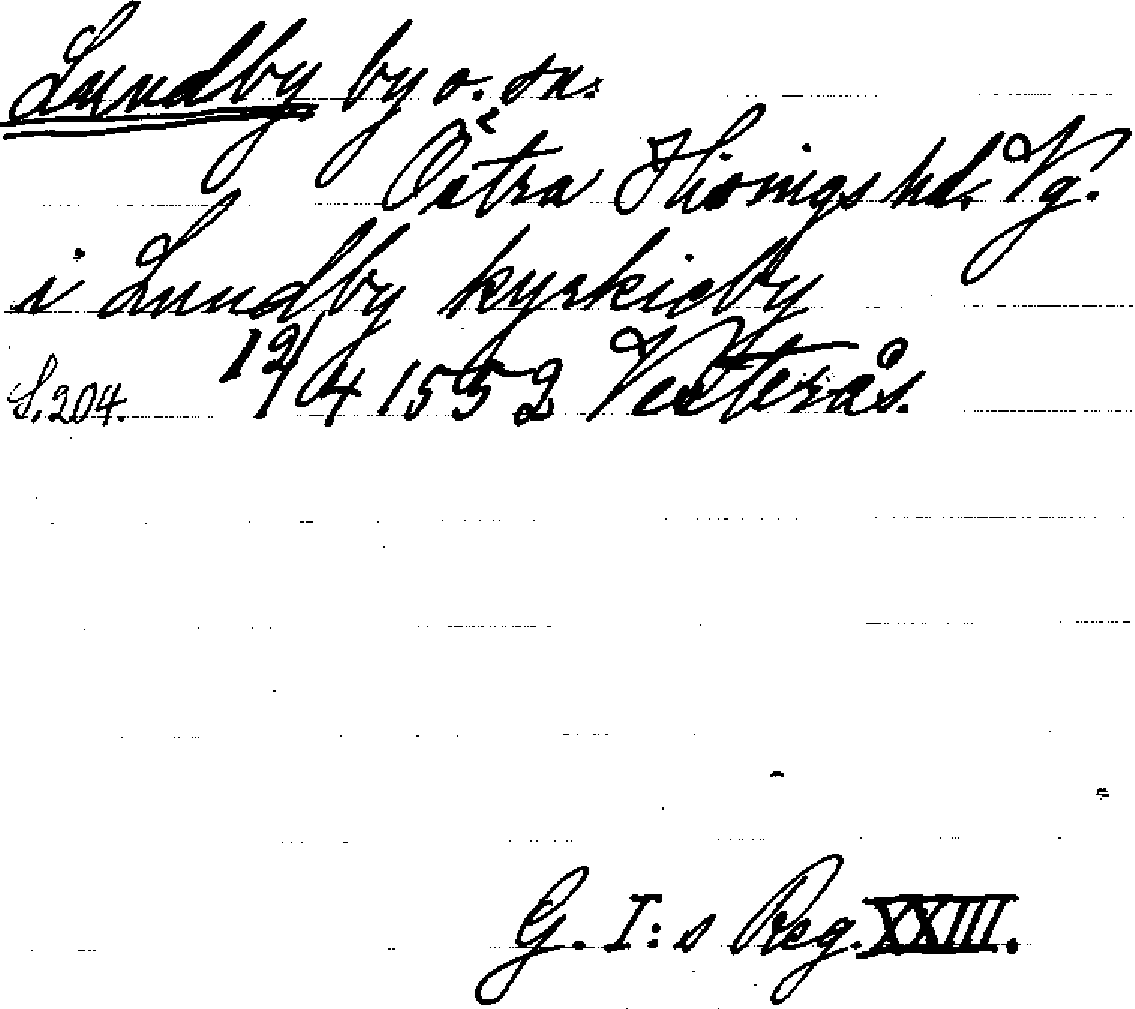 Lundby by o. sn.
Östra Hisings hd. Vg.
i Lundby kyrkieby
S. 204. 12/4 1552 Vesterås.
G. I:s Reg. XXIII.